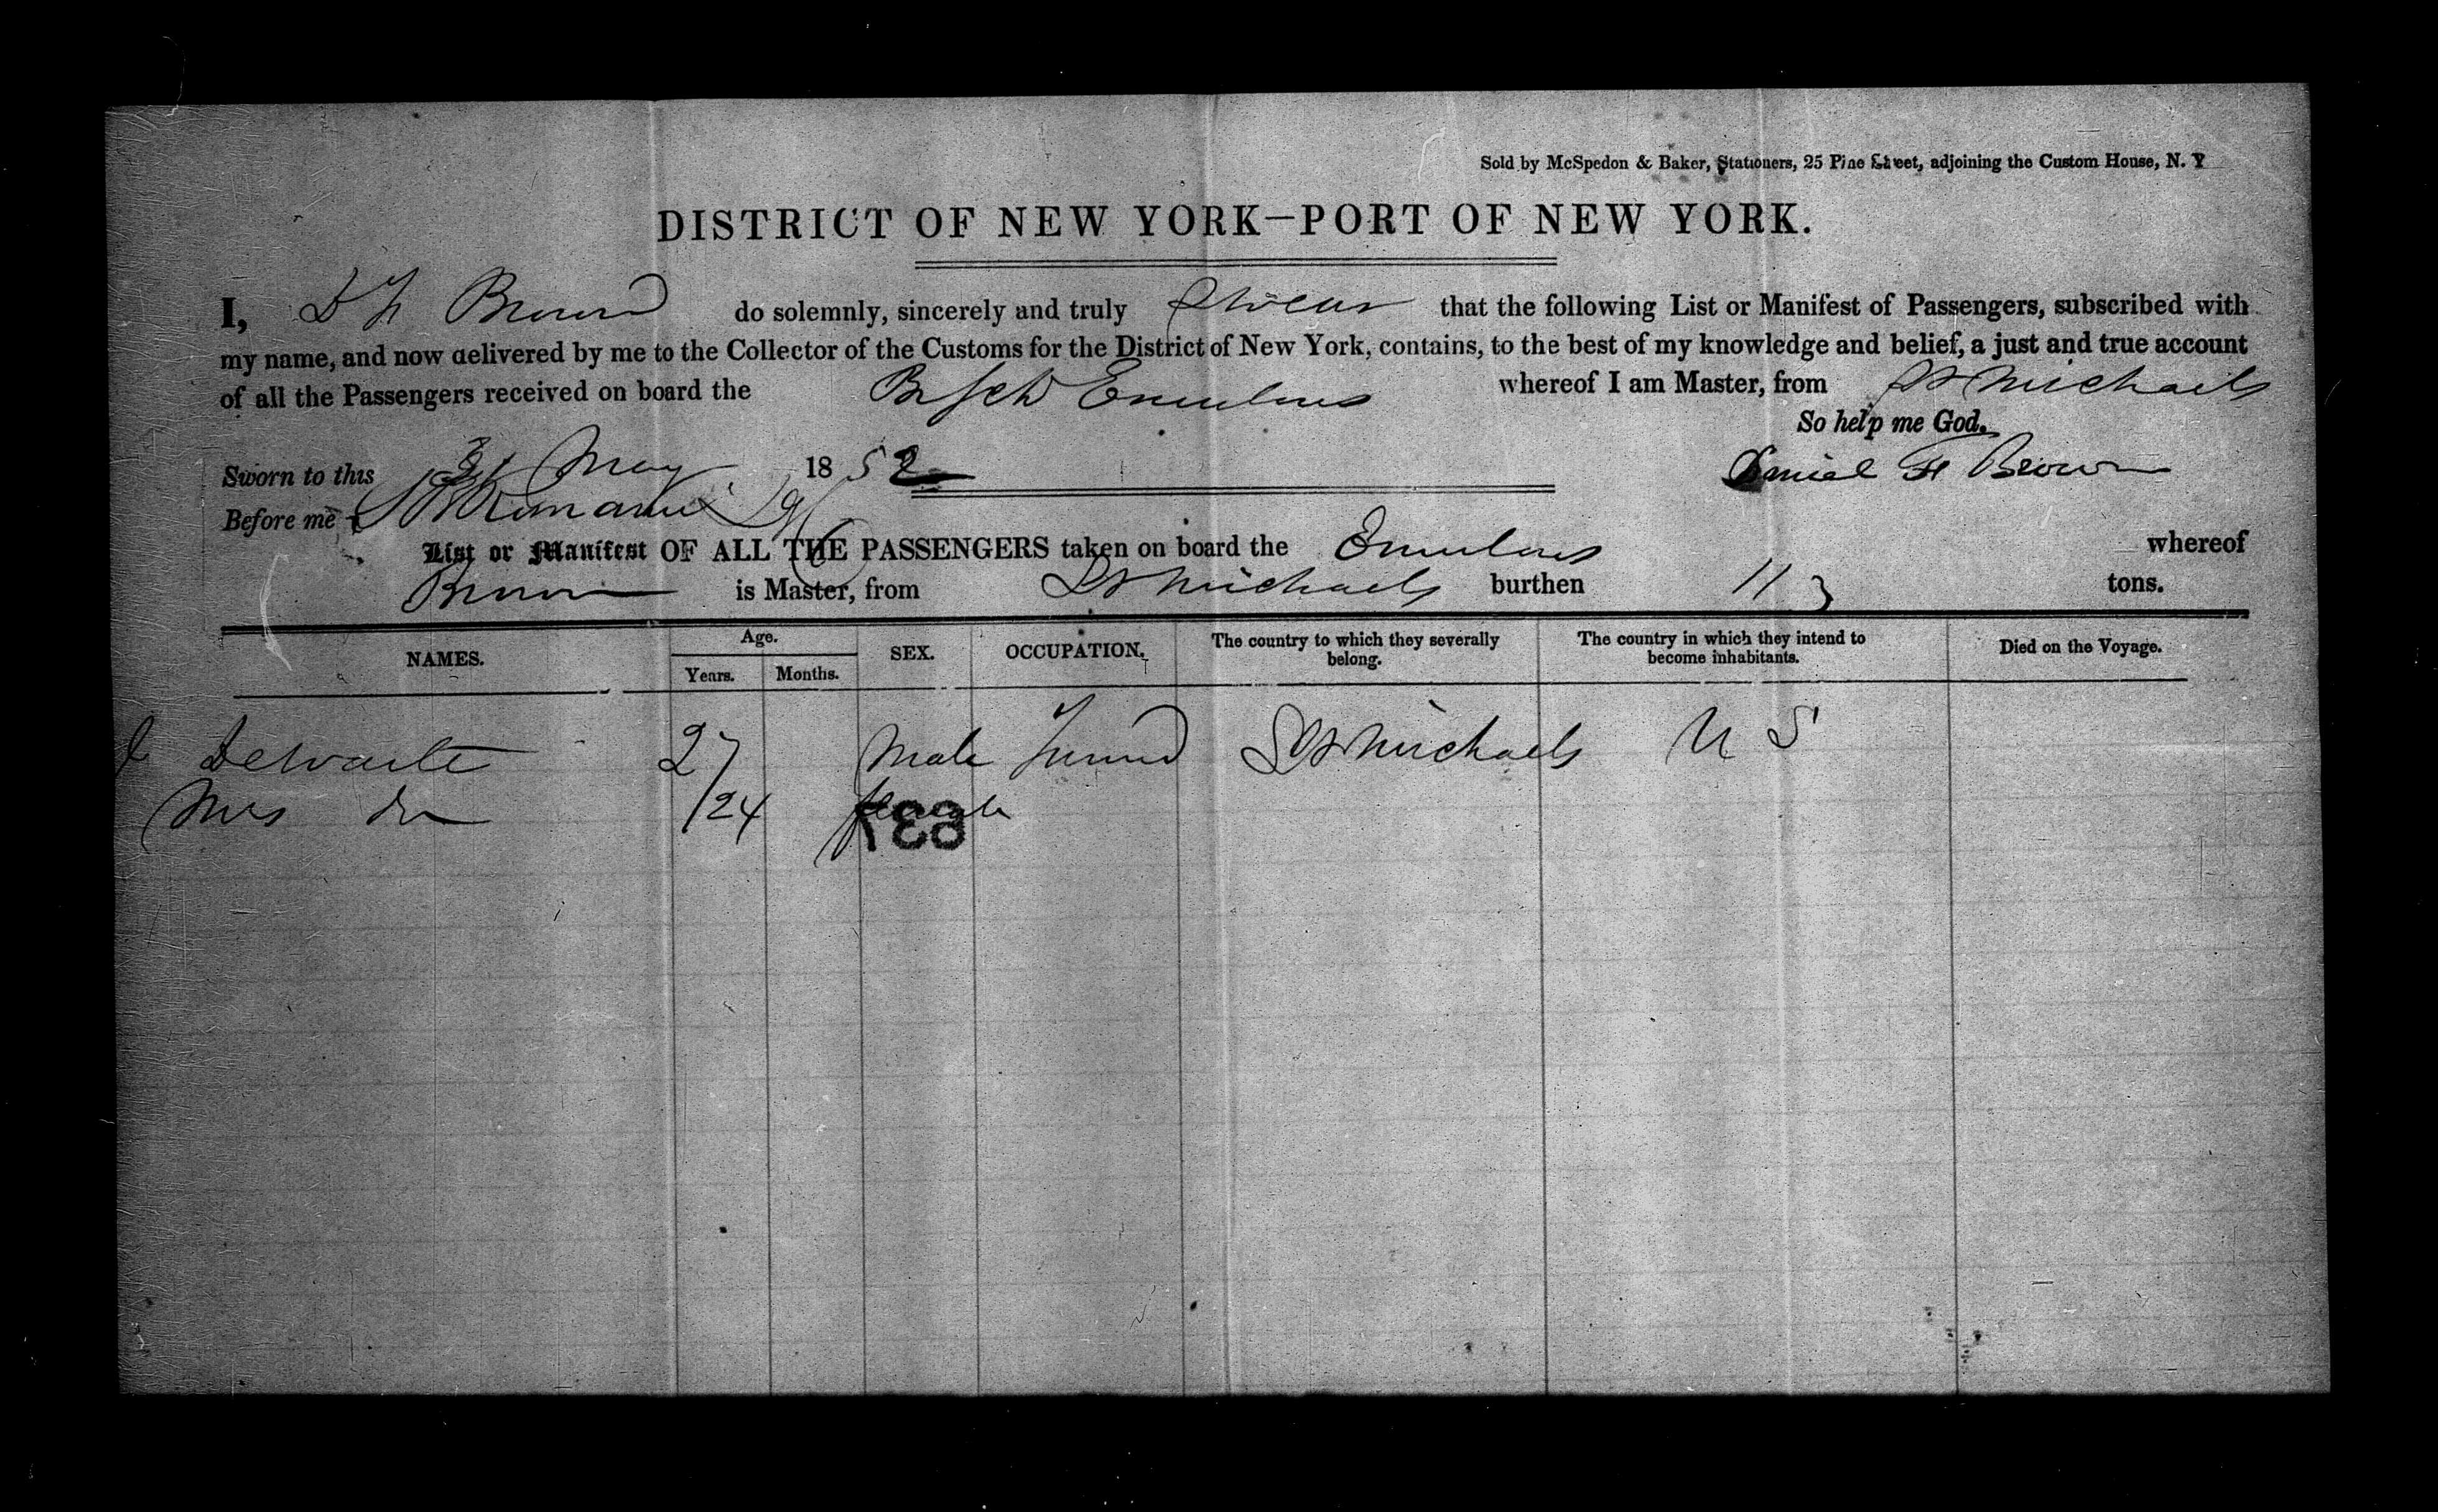 Sold by McSpedon & Baker, Stationers, 25 Pine Street, adjoining the Custom House, N. Y
DISTRICT OF NEW YORK—PORT OF NEW YORK.
I, D F Brown do solemnly, sincerely and truly swear that the following List or Manifest of Passengers, subscribed with
my name, and now delivered by me to the Collector of the Customs for the District of New York, contains, to the best of my knowledge and belief, a just and true account
of all the Passengers received on board the Br Sch Emulous whereof I am Master, from St Michaels
So help me God.
Sworn to this May 1852 Daniel F Brown
Before me
List or Manifest OF ALL THE PASSENGERS taken on board the Emulous whereof
Brown is Master, from St Michaels burthen 113 tons.
NAMES. Age. SEX. OCCUPATION. The country to which they severally belong. The country in which they intend to become inhabitants. Died on the Voyage.
Years. Months.
27 Male St Michaels U S
Mrs Do 24 female
637